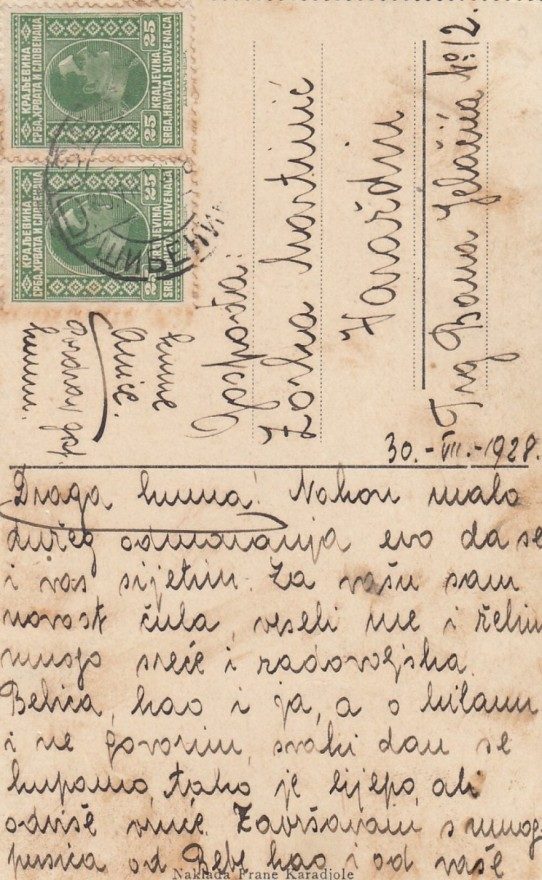 КРАЉЕВИНА
СРБА, ХРВАТА И СЛОВЕНАЦА
25
25
KRALJEVINA
SRBA, HRVATA I SLOVENACA
КРАЉЕВИНА
СРБА, ХРВАТА И СЛОВЕНАЦА
25
25
KRALJEVINA
SRBA, HRVATA I SLOVENACA
ШИБЕНИК
kume
Anice.
kumu.
Gospođa:
Zorka Martinić
Varaždin
Trg Bana Jelačića No. 12.
30.-VII.-1928.
Draga kuma! Nakon malo
dužeg odmaranja evo da se
i vas sjetim. Za vašu sam
novost čula, veseli me i želim
mnogo sreće i zadovoljstva.
Bebica, kao i ja, a o Milanu
i ne govorim, svaki dan se
kupamo. Tako je lijepo, ali
odviše vruće. Završavam s mnogo
pusica od Bebe kao i od vaše
Naklada Frane Karadjole